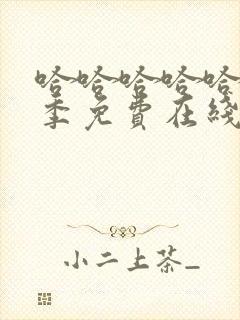 哈哈哈哈哈
季免費在綫
小二上茶_